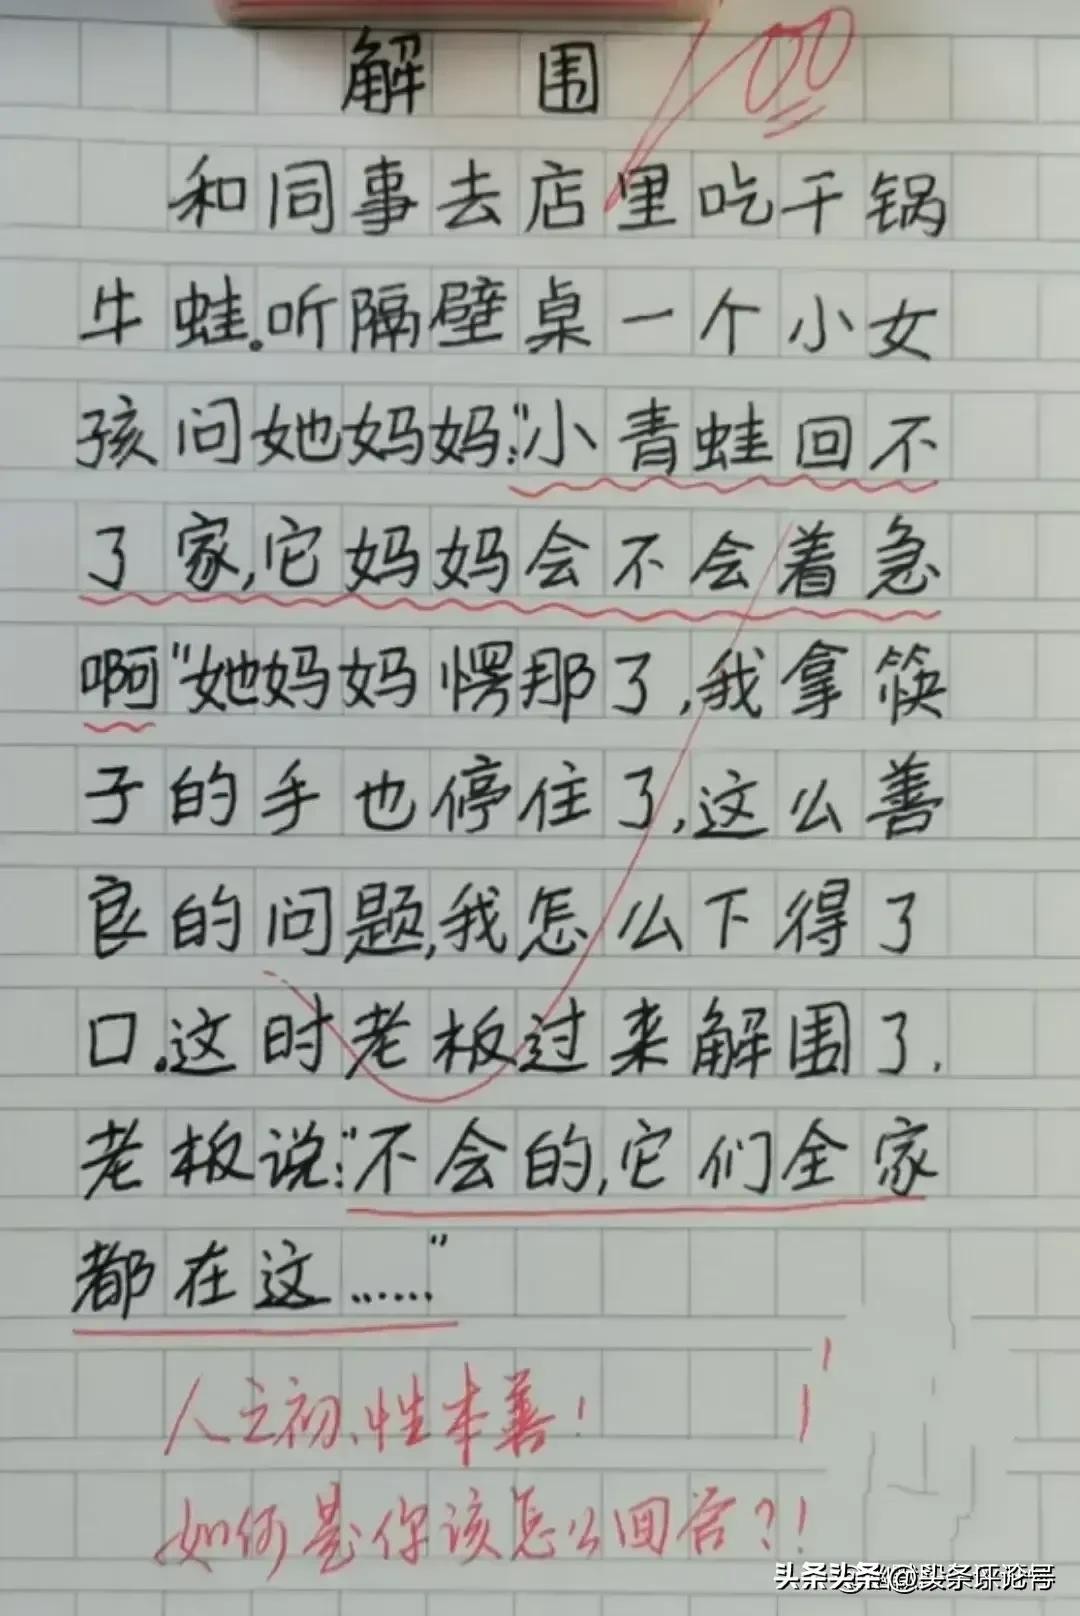 解围
100
和同事去店里吃干锅
牛蛙。听隔壁桌一个小女
孩问她妈妈:"小青蛙回不
了家,它妈妈会不会着急
啊"她妈妈愣那了,我拿筷
子的手也停住了,这么善
良的问题,我怎么下得了
口.这时老板过来解围了.
老板说:"不会的,它们全家
都在这……"
人之初、性本善!
如何是你该怎么回答?!
头条 @头条评论号